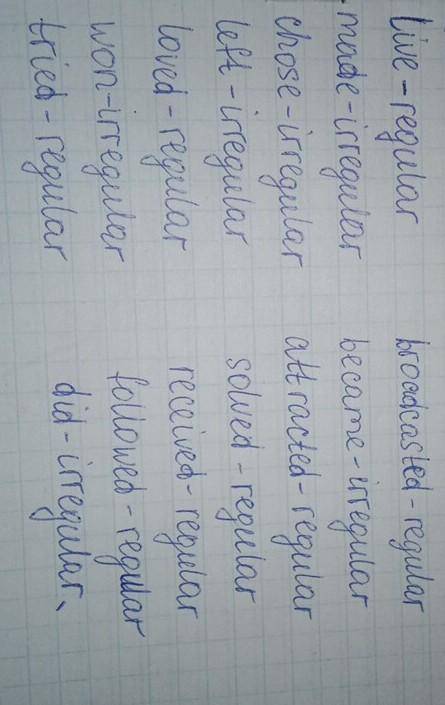 live - regular
made - irregular
chose - irregular
left - irregular
loved - regular
won - irregular
tried - regular
broadcasted - regular
became - irregular
attracted - regular
solved - regular
received - regular
followed - regular
did - irregular.